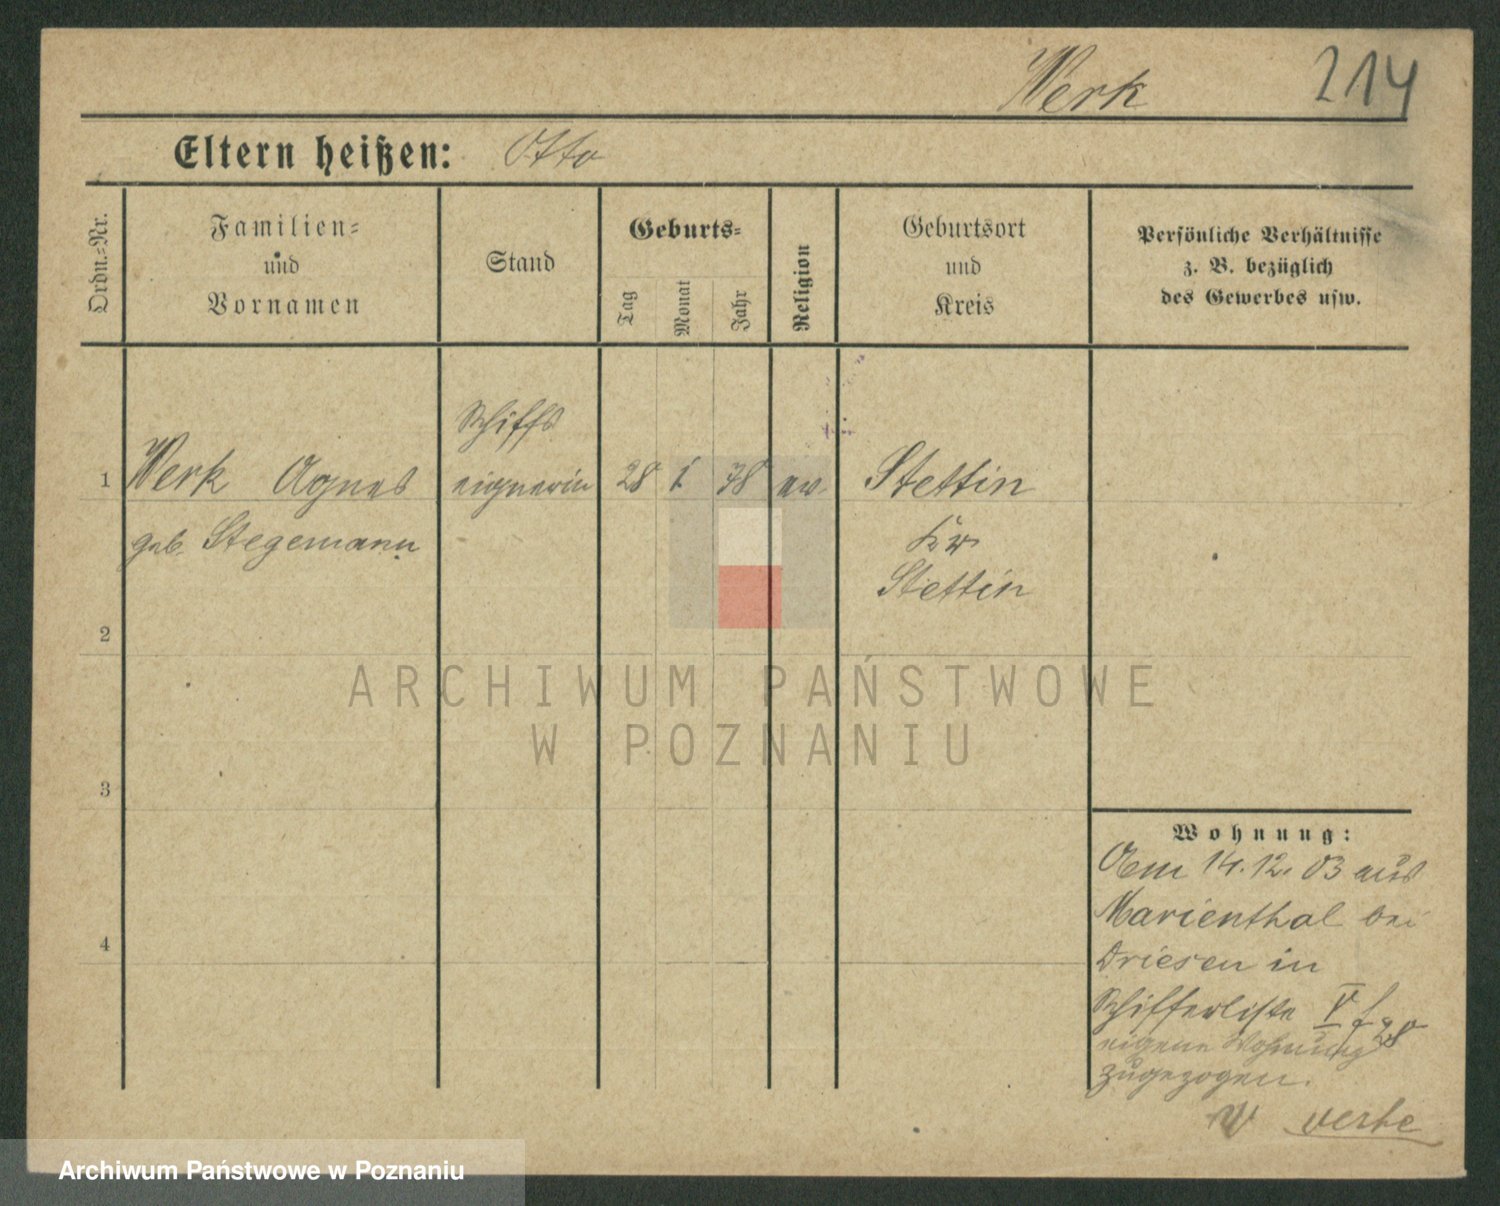 Werk 214
Eltern heißen: Otto
Ordn.-Nr.
Familien-
und
Vornamen
Stand
Geburts-
Tag
Monat
Jahr
Religion
Geburtsort
und
Kreis
Persönliche Verhältnisse
z. B. bezüglich
des Gewerbes usw.
Schiffs
1 Werk Agnes eignerin 28 1 78 ev. Stettin
geb. Stegemann Kr
Stettin
2
3
4
Wohnung:
Am 14.12.03 aus
Marienthal bei
Driesen in
Schifferliste V f 28
eigene Wohnung
zugezogen.
verte
ARCHIWUM PAŃSTWOWE
W POZNANIU
Archiwum Państwowe w Poznaniu